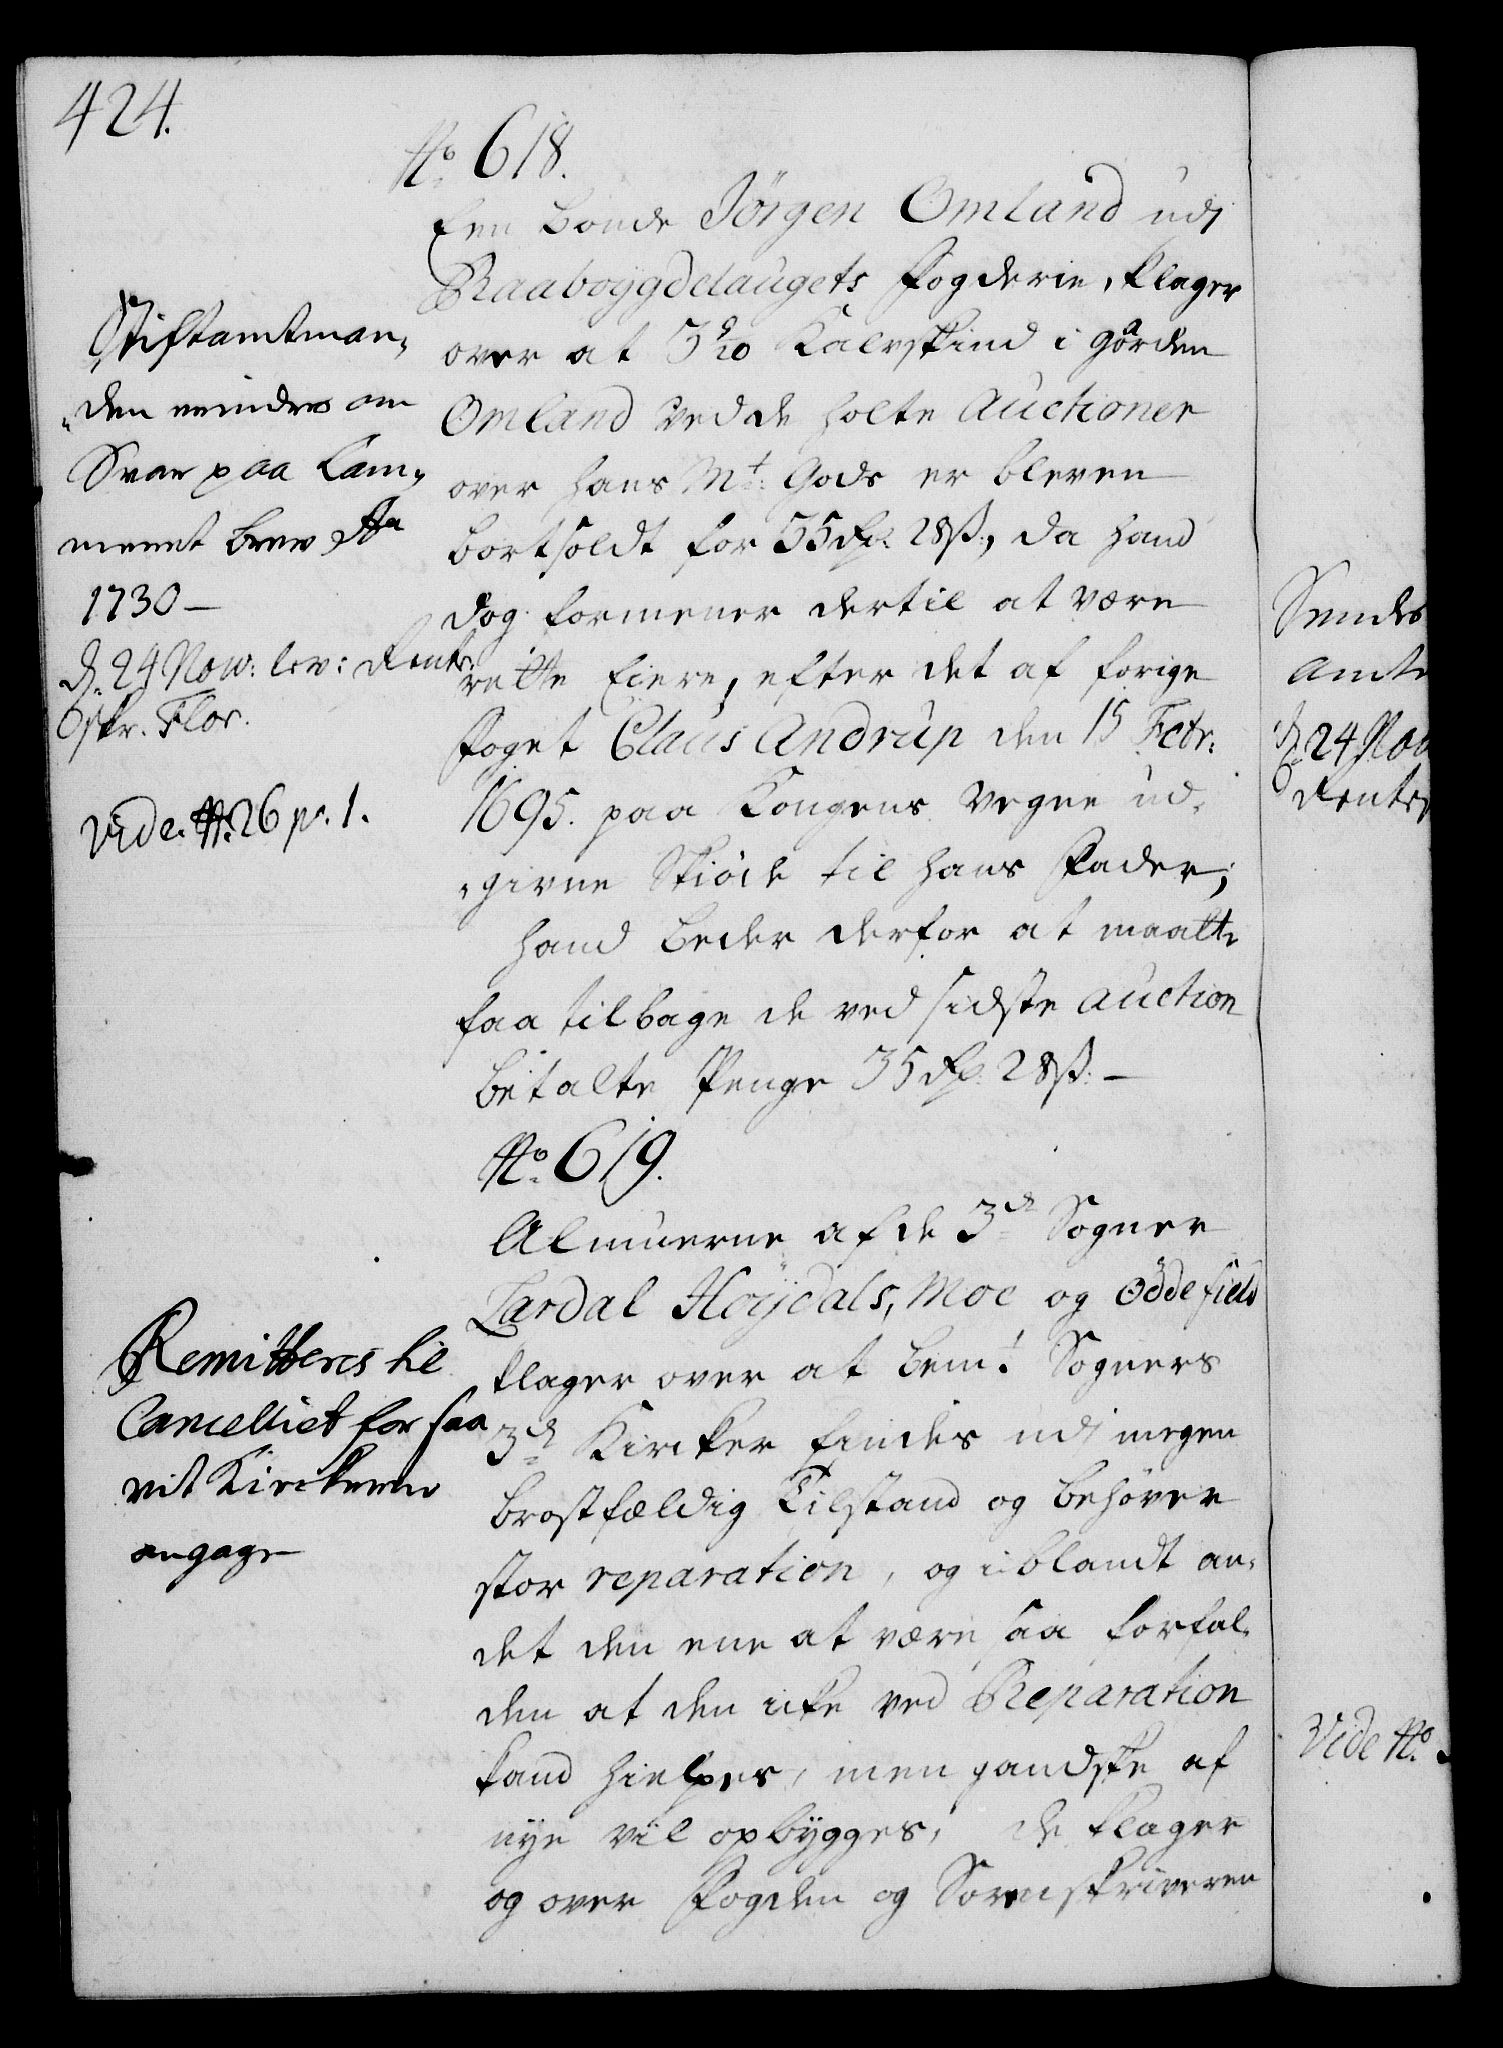 424.
No. 618.
Een Bonde Jörgen Omland udj
Raaboygdelaugets Fogderie, klager
over at 3 Kalvskind i gaarden
Omland ved de holte Auctioner
over hans Mt: Gods er bleven
bortsoldt for 35 Rd. 28 ß., da hand
dog formener dertil at være
rette Eiere, efter det af forige
Foget Claus Andrup den 15 Febr:
1695. paa Kongens vegne ud-
givne Skiöde til hans Fader;
hand beder derfor at maatte
faa tilbage de ved sidste Auction
betalte Penge 35 Rd. 28 ß. –
Stiftamtman-
den mindes om
Svar paa Cam-
merets Brev Ao
1730 –
d. 24 Nov: lev: Rente-
skr. Flor.
Vide. No. 26 p. 1.
No. 619.
Almuerne af de 3de Sogner
Lardal Höydals, Moe og Ödefield
klager over at bemt. Sogners
3de Kircker findes udj megen
bröstfældig Tilstand og behöver
stor reparation, og iblandt an-
det den ene at være saa forfal-
den at den icke ved Reparation
kand hielpes, men gandske af
nye vil opbygges, de klager
og over Fogden og Sorenskriveren
Remitteres til
Cancelliet for saa
vit Kirckerne
angaar
Sendes
Amt
d. 24 Nov
Rentes
Vide No.